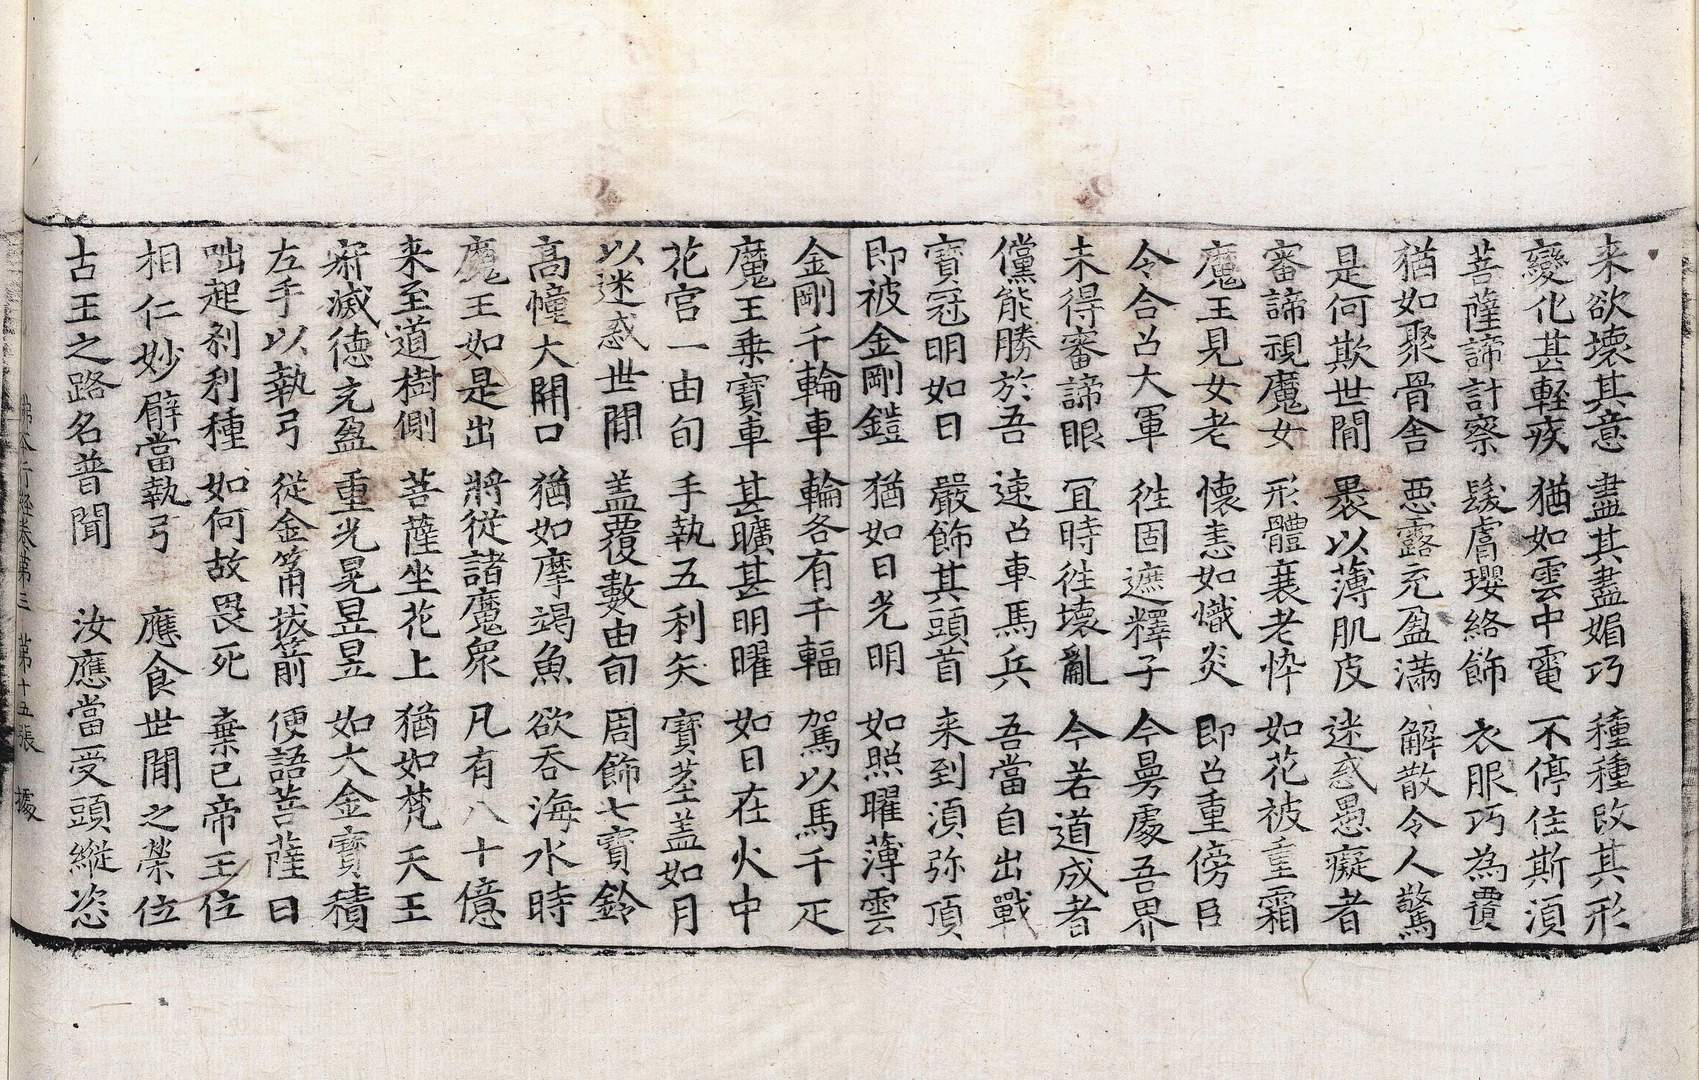 来欲壊其意 盡其盡媚巧 種種改其形
變化甚輕疾 猶如雲中電 不停住斯須
菩薩諦計察 髮膚瓔絡飾 衣服巧為覆
猶如聚骨舎 惡露充盈滿 解散令人驚
是何欺世閒 褁以薄肌皮 迷惑愚癡者
審諦視魔女 形體衰老悴 如花被重霜
魔王見女老 懷恚如熾炎 即召重傍臣
令合召大軍 徃固遮釋子 今㝵處吾界
未得審諦眼 冝時徃壊亂 今若道成者
儻能勝於吾 速召車馬兵 吾當自出戰
寶冠明如日 嚴飾其頭首 来到湏弥頂
即被金剛鎧 猶如日光明 如照曜薄雲
金剛千輪車 輪各有千輻 駕以馬千疋
魔王乗寶車 甚曠甚明曜 如日在火中
花宫一由旬 手執五利矢 寶莖盖如月
以迷惑世閒 盖覆數由旬 周飾七寶鈴
高幢大開口 猶如摩竭魚 欲呑海水時
魔王如是出 將從諸魔衆 凡有八十億
来至道樹側 菩薩坐花上 猶如梵天王
寂滅徳充盈 重光晃昱昱 如大金寶積
左手以執弓 從金筩拔箭 便語菩薩曰
咄起刹利種 如何故畏死 棄已帝王位
相仁妙臂當執弓 應食世閒之榮位
古王之路名普聞 汝應當受頭縱恣
佛本行經卷第三 第十五張 據